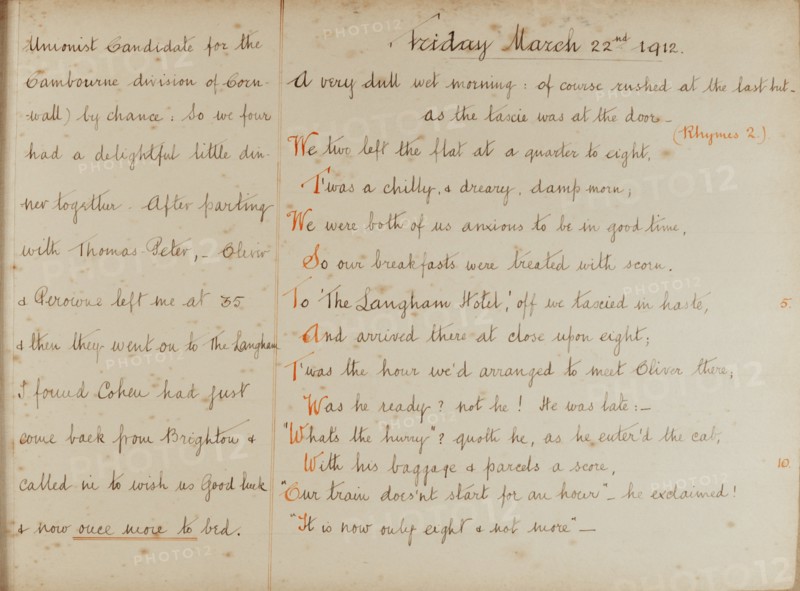 Unionist Candidate for the
Cambourne division of Corn-
wall) by chance: So we four
had a delightful little din-
ner together - After parting
with Thomas-Peter, - Oliver
& Perowne left me at 35
& then they went on to The Langham
I found Cohen had just
come back from Brighton &
called in to wish us Good luck
& now once more to bed.
Friday March 22nd 1912.
A very dull wet morning: of course rushed at the last but-
as the taxcie was at the door -
(Rhymes 2.)
We two left the flat at a quarter to eight,
T'was a chilly, & dreary, damp morn;
We were both of us anxious to be in good time,
So our breakfasts were treated with scorn.
To 'The Langham Hotel,' off we taxcied in haste, 5.
And arrived there at close upon eight;
T'was the hour we'd arranged to meet Oliver there;
Was he ready? not he! He was late: -
"What's the hurry"? quoth he, as he enter'd the cab,
With his baggage & parcels a score, 10.
"Our train does'nt start for an hour" - he exclaimed!
"It is now only eight & not more" -
PHOTO12